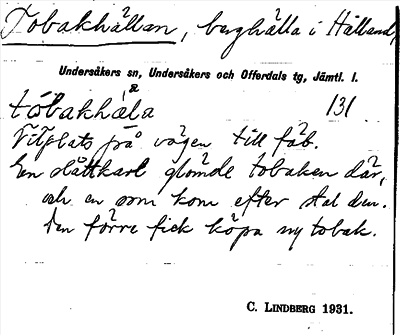 Tobakhällan, berghälla i Hålland,
Undersåkers sn, Undersåkers och Offerdals tg, Jämtl. l.
tòbakhä̀la 131
Viloplats på vägen till fäb.
En slåttkarl glömde tobaken där,
och en som kom efter stal den.
Den förre fick köpa ny tobak.
C. LINDBERG 1931.